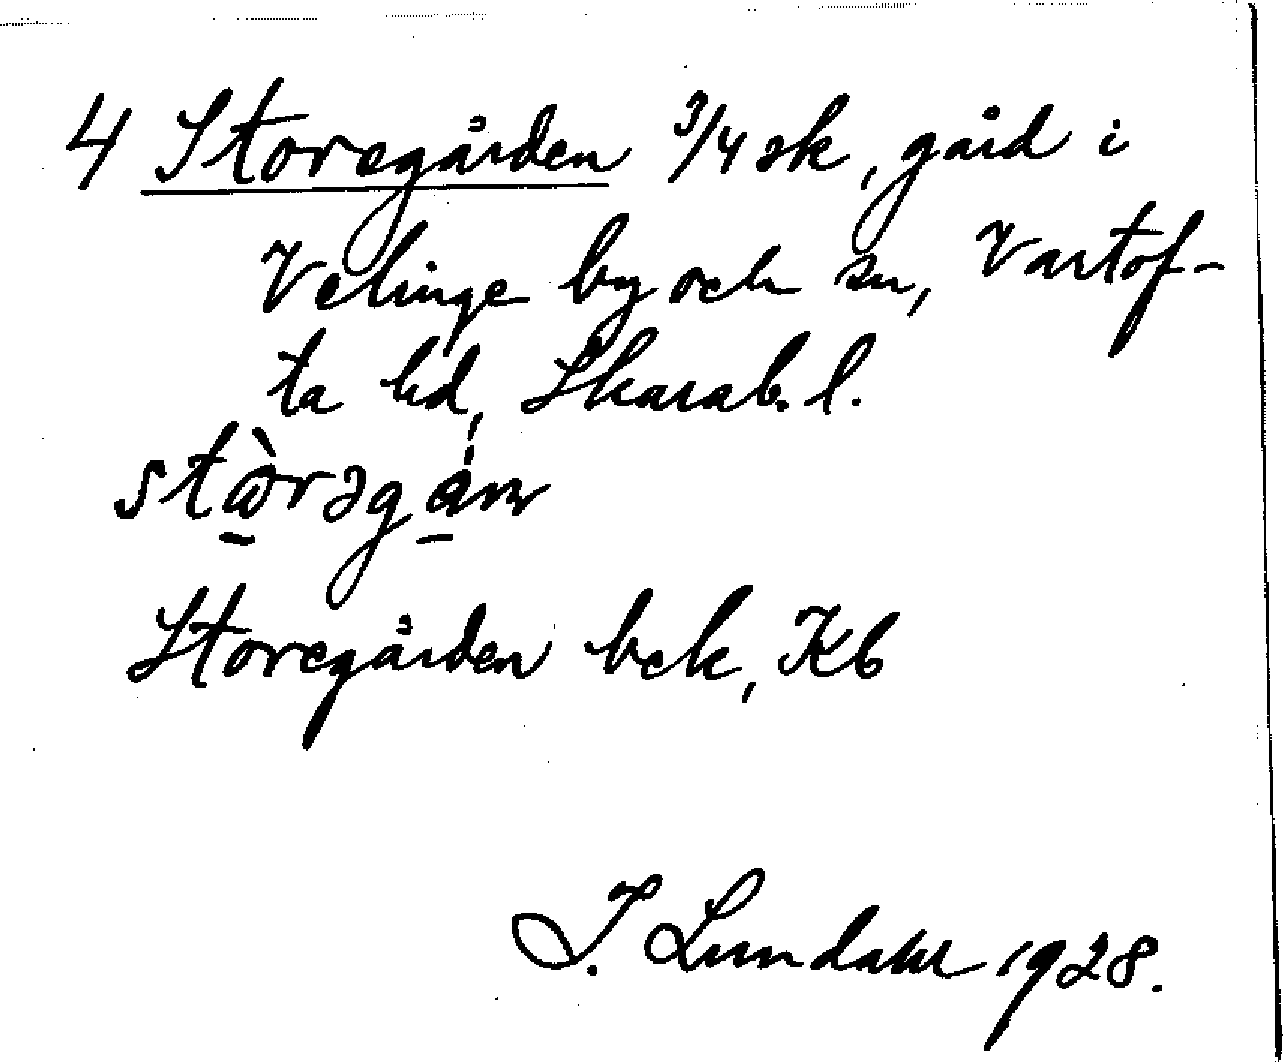 4 Storegården 3/4 sk, gård i
Velinge by och sn, Vartof-
ta hd, Skarab. l.
Storegården bek, Kb
I. Lundahl 1928.